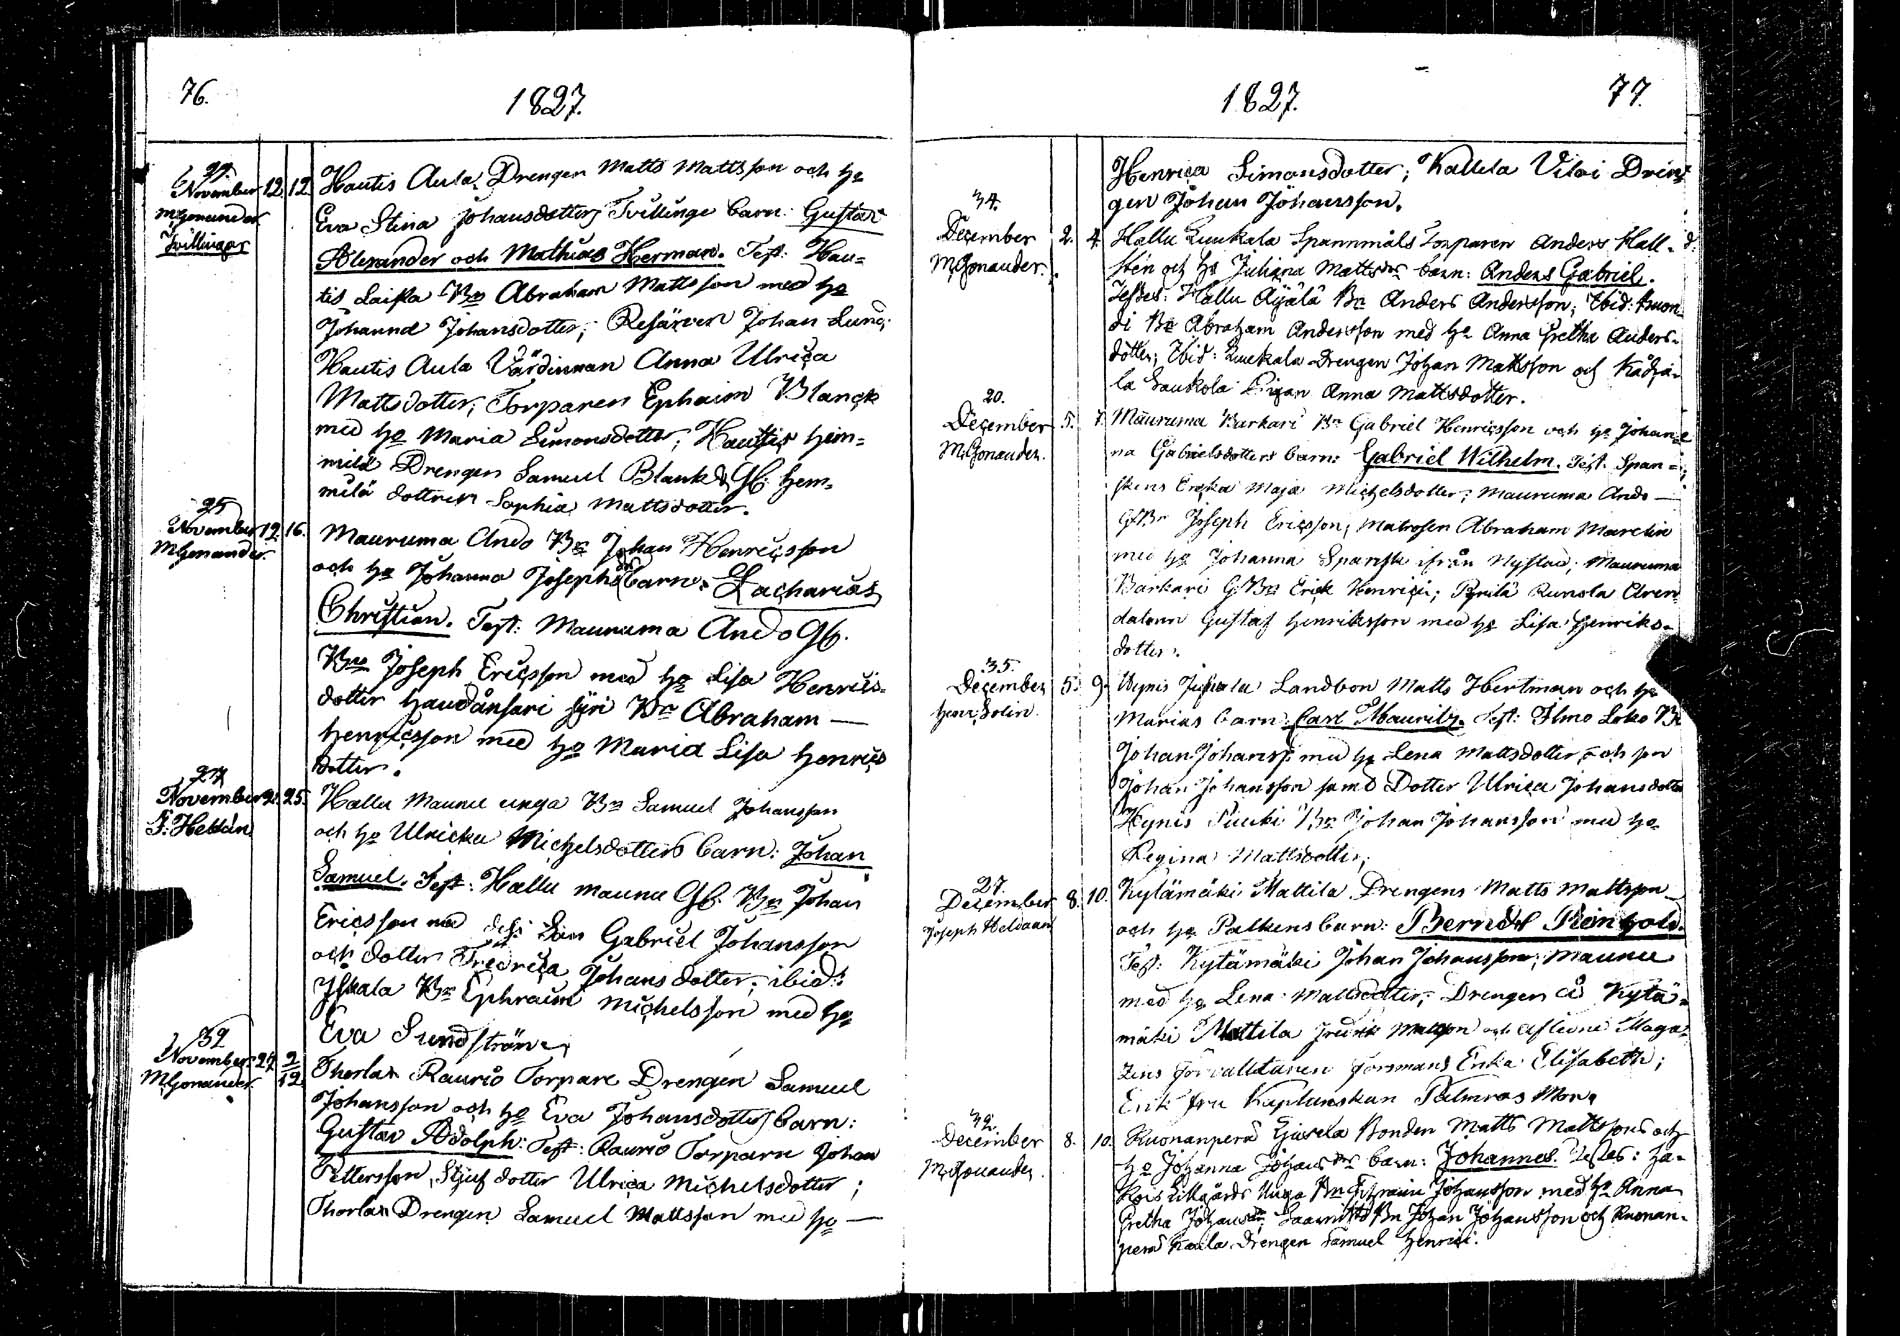 76.
1827.
27.
November 12. 12.
M. Gonander.
Tvillingar
Hautis Aula Drengen Matts Mattsson och H:o
Eva Stina Johansdotters Tvillinge barn: Gustav
Alexander och Mathias Herman. Test: Hau-
tis Laissa B:n Abraham Mattsson med H:o
Johanna Johansdotter; Johan Lund;
Hautis Aula Värdinnan Anna Ulrica
Mattsdotter; Torparen Ephaim Blanck
med H:o Maria Simonsdotter; Hautis Hem-
milä Drengen Samuel Blank & Gb: Hem-
milä dottren Sophia Mattsdotter.
25
November 12. 16.
M Gonander.
Mauruma Ando B:n Johan Henricsson
och H:o Johanna Josephsd:rs barn: Zacharias
Christian. Test: Mauruma Ando Gb.
B:n Joseph Ericsson med H:o Lisa Henrics-
dotter B:n Abraham —
Henricsson med H:o Maria Lisa Henrics
dotter.
27
November 21. 25.
J. Heldán
Hallu Maunu unga B:n Samuel Johansson
och H:o Ulricka Michelsdotters barn: Johan
Samuel. Test: Hallu Maunu Gb. B:n Johan
Ericsson med dess Son Gabriel Johansson
och dotter Fredrica Johansdotter; ibid:
Yskala B:n Ephraim Michelsson med H:o
Eva Sundström.
32
November 27. 2/12.
M Gonander.
Thorlax Raurio Torpare Drengen Samuel
Johansson och H:o Eva Johansdotters barn:
Gustav Adolph: Test: Raurio Torparn Johan
Pettersson, Stjuf dotter Ulrica Michelsdotter;
Thorlax Drengen Samuel Mattsson med H:o —
1827.
77.
Henrica Simonsdotter; Kallela Viloi Drän-
gen Johan Johansson.
34.
December 2. 4.
M. Gonander.
Hallu Luukala Spannmåls Torparen Anders Hall-
stén och H:o Juliana Mattsd:rs barn: Anders Gabriel.
Testes: Hallu Äyälä B:n Anders Andersson; Ibid: Knuon
di B:n Abraham Andersson med H:o Anna Gretha Anders-
dotter; Ibid: Luukala Drengen Johan Mattsson och
la Saukola Pigan Anna Mattsdotter.
20.
December 5. 7.
M. Gonander.
Mauruma Barkari B:n Gabriel Henricsson och H:o Johan-
na Gabrielsdotters barn: Gabriel Wilhelm. Test. Span-
skens Enka Maja Michelsdotter; Mauruma Ando —
G. B:n Joseph Ericsson; Matrosen Abraham Marelin
med H:o Johanna Spansk ifrån Nystad; Mauruma
Barkari G. B:n Erick Henrici; Pyrilä Runola Aren-
datorn Gustaf Henriksson med H:o Lisa Henriks-
dotter.
35.
December 5. 9.
Henr. Solin.
Hynis Landbon Matts Hertman och H:o
Marias barn: Carl Mauritz. Test: Ilmo Loko B:n
Johan Johanss: med H:o Lena Mattsdotter, och son
Johan Johansson samt Dotter Ulrica Johansdotter
Hynis Puuki B:n Johan Johansson med H:o
Regina Mattsdotter;
27.
December 8. 10.
Joseph Heldaan
Kytämäki Mattila Drengens Matts Mattsson
och H:o Palkens barn: Berndt Reinhold.
Test: Kytämäki Johan Johansson; Maunu
med H:o Lena Mattsdotter; Drengen å Kytä-
mäki Mattila Fredrik Matsson och Afledne Maga-
zins Förvaltaren Forsmans Enka Elisabeth;
Enke fru Kaplanskan Palmros Mor.
32.
December 8. 10.
M. Gonander
Kuonanperä Giusela Bonden Matts Mattsons och
H:o Johanna Johansd:rs barn: Johannes. Testes: Ha-
kois Lillgårds Unga B:n Ephraim Johansson med H:o Anna
Gretha Johansd:r; B:n Johan Johansson och Kuonan-
perä Kaila Drengen Samuel Henrici.